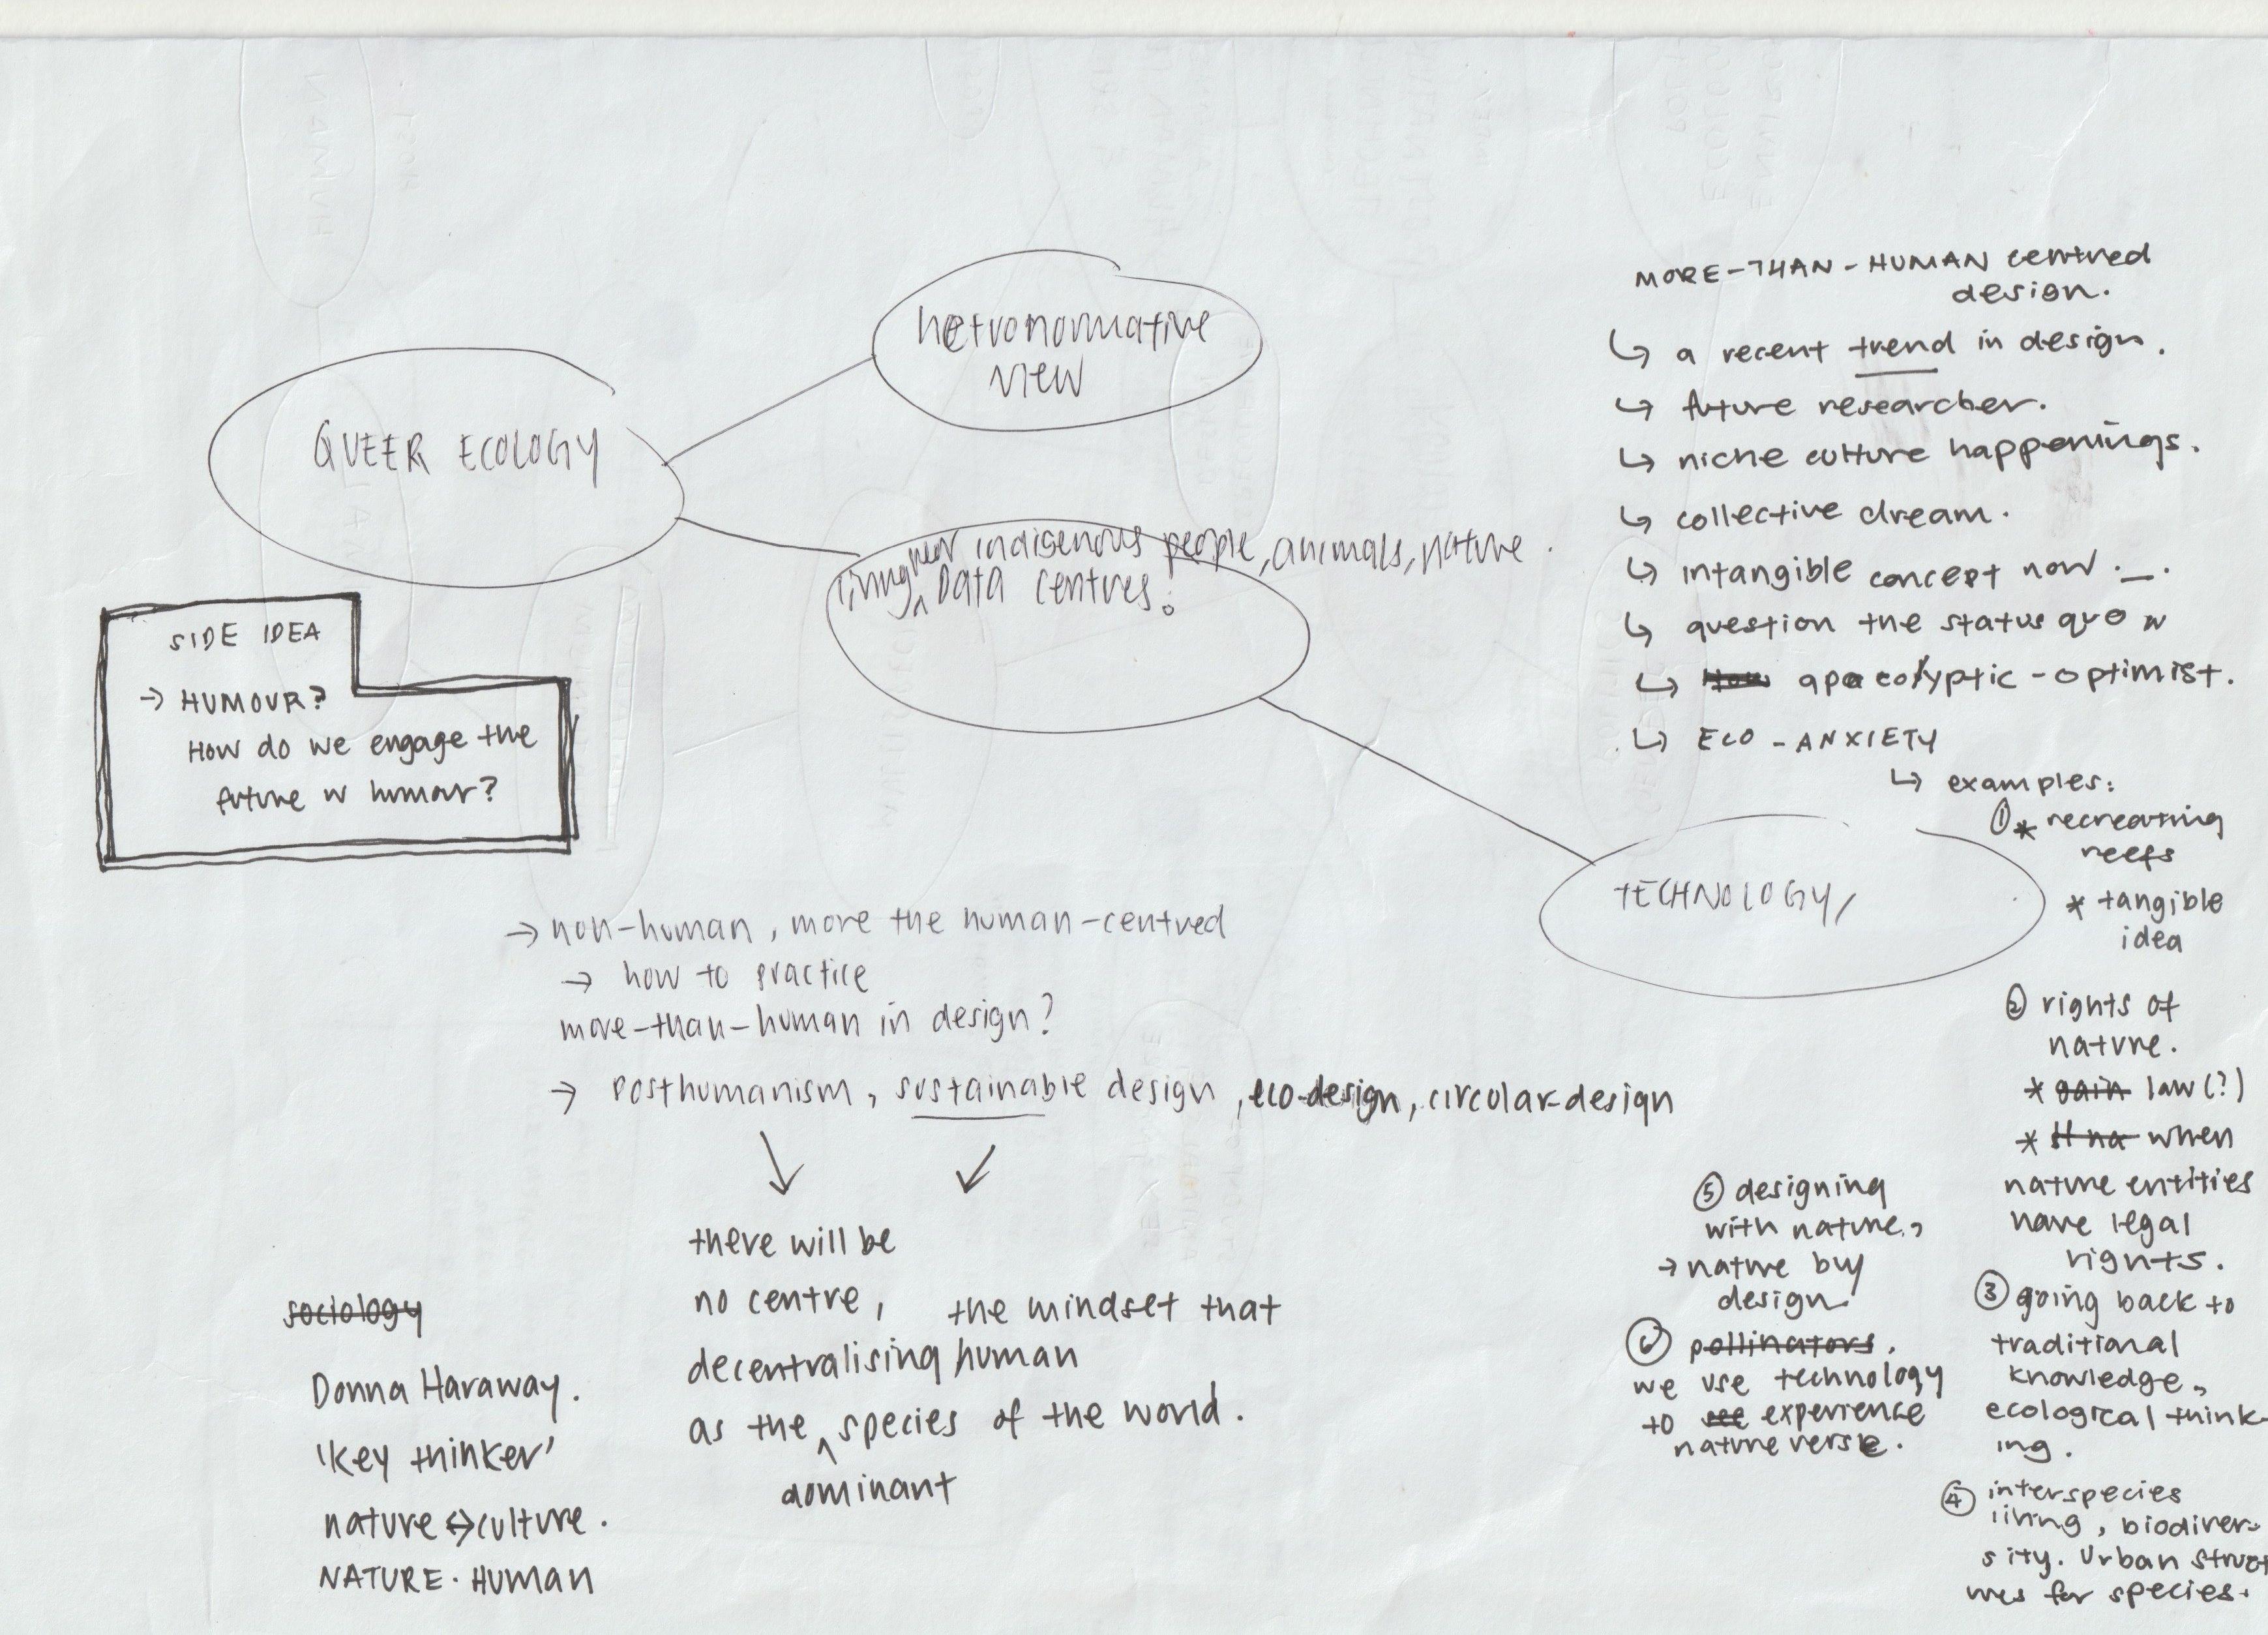 QUEER ECOLOGY
hetronormative
view
living near indigenous people, animals, nature.
Data centres.
TECHNOLOGY,
SIDE IDEA
→ HUMOUR?
How do we engage the
future w humour?
→ non-human, more the human-centred
→ how to practice
more-than-human in design?
→ Posthumanism, sustainable design, eco-design, circular design
there will be
no centre, the mindset that
decentralising human
as the species of the world.
dominant
sociology
Donna Haraway.
'key thinker'
nature ↔ culture.
NATURE. HUMAN
MORE-THAN-HUMAN centred
design.
↳ a recent trend in design.
↳ future researcher.
↳ niche culture happenings.
↳ collective dream.
↳ intangible concept now._.
↳ question the status quo
↳ How apacolyptic-optimist.
↳ ECO-ANXIETY
↳ examples:
① * recreating
reefs
* tangible
idea
② rights of
nature.
* gain law(?)
* when
nature entities
have legal
rights.
③ going back to
traditional
knowledge,
ecological think-
ing.
④ interspecies
living, biodiver-
sity. Urban struct
ures for species.
⑤ designing
with nature,
→ nature buy
design
⑥ pollinators.
we use technology
to see experience
nature verse.